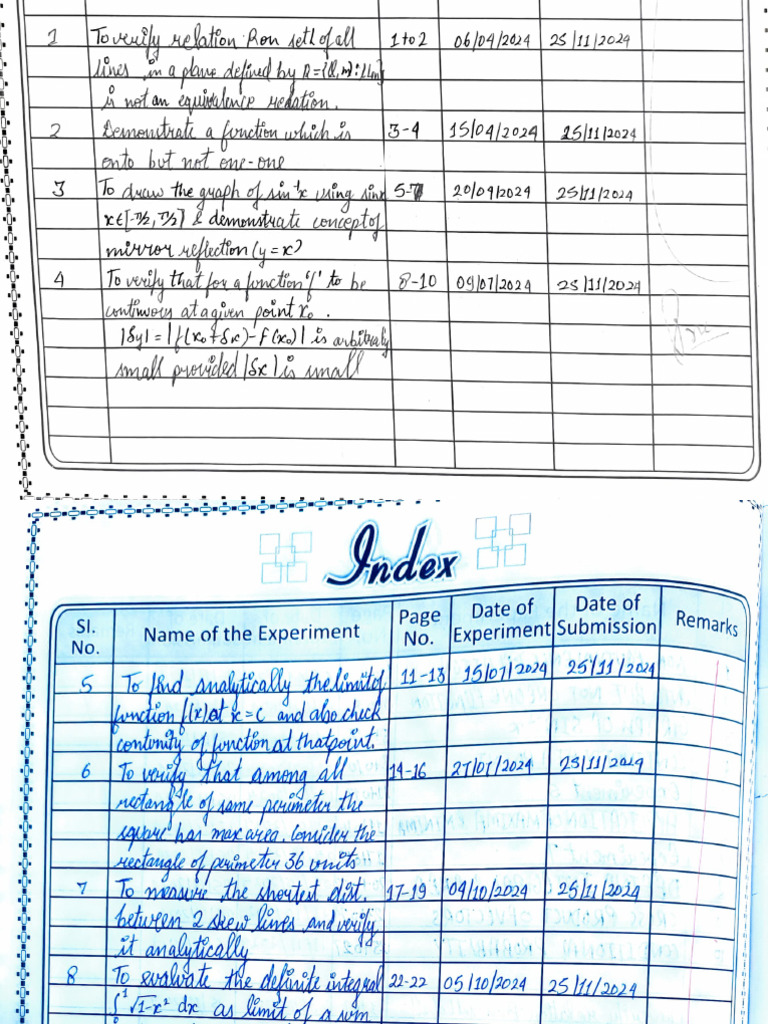 1 To verify relation R on set L of all 1 to 2 06/04/2024 25/11/2024
lines in a plane defined by R={(l, m): l⊥m}
is not an equivalence relation.
2 Demonstrate a function which is 3-4 15/04/2024 25/11/2024
onto but not one-one
3 To draw the graph of sin⁻¹x using sinx 5-7 20/04/2024 25/11/2024
x∈[-π/2, π/2] & demonstrate concept of
mirror reflection (y=x)
4 To verify that for a function 'f' to be 8-10 09/07/2024 25/11/2024
continuous at a given point x₀.
|δy|=|f(x₀+δx)-f(x₀)| is arbitraly
small provided |δx| is small
Index
Sl. No. Name of the Experiment Page No. Date of Experiment Date of Submission Remarks
5 To find analytically the limit of 11-13 15/07/2024 25/11/2024
function f(x) at x=c and also check
continuity of function at that point.
6 To verify that among all 14-16 27/07/2024 25/11/2024
rectangle of same perimeter the
square has max area. Consider the
rectangle of perimeter 36 units
7 To measure the shortest dist. 17-19 04/10/2024 25/11/2024
between 2 skew lines and verify
it analytically
8 To evaluate the definite integral 22-22 05/10/2024 25/11/2024
∫¹ √1-x² dx as limit of a sum